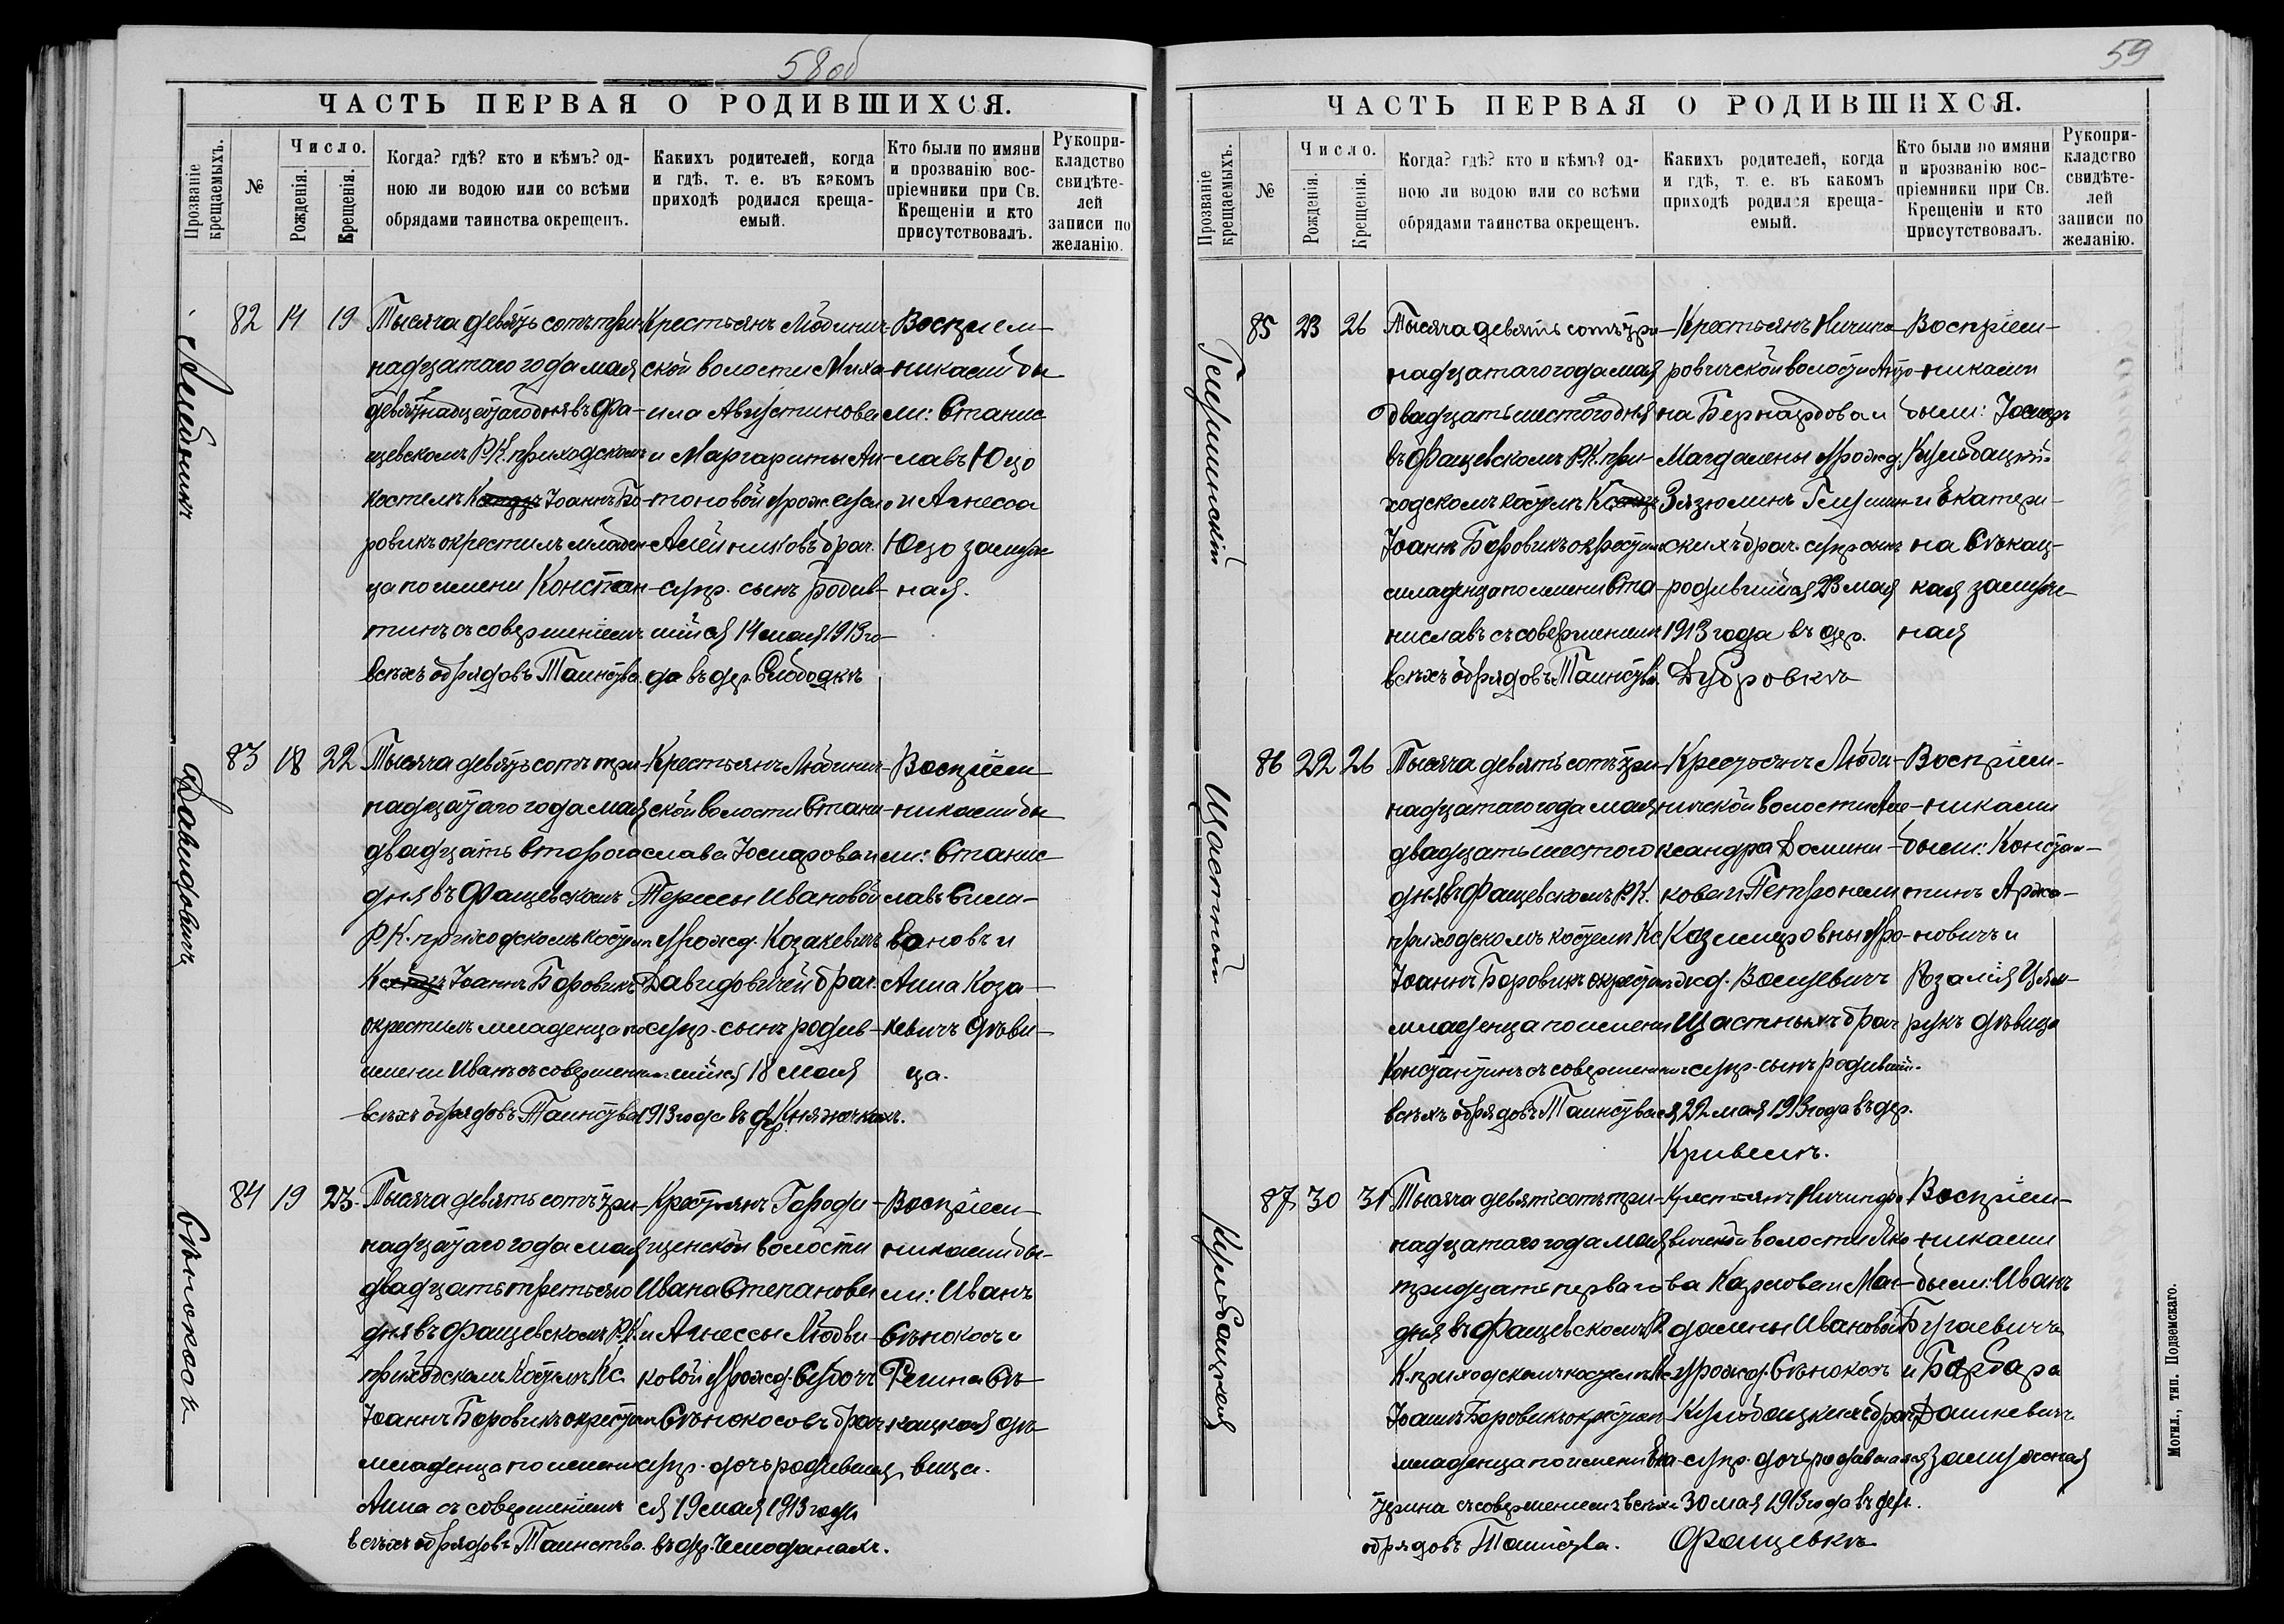 58об
ЧАСТЬ ПЕРВАЯ О РОДИВШИХСЯ.
Прозваніе крещаемыхъ.
№
Число.
Рожденія.
Крещенія.
Когда? гдѣ? кто и кѣмъ? од-
ною ли водою или со всѣми
обрядами таинства окрещенъ.
Какихъ родителей, когда
и гдѣ, т. е. въ какомъ
приходѣ родился креща-
емый.
Кто были по имяни
и прозванію вос-
пріемники при Св.
Крещеніи и кто
присутствовалъ.
Рукопри-
кладство
свидѣте-
лей
записи по
желанію.
82 14 19
Тысяча девять сотъ три-
надцатаго года мая
девятнадцатаго дня въ Фа-
щевскомъ Р.К. приходскомъ
костелѣ Іоаннъ Бо-
ровикъ окрестилъ младен-
ца по имени Констан-
тинъ съ совершеніемъ
всѣхъ обрядовъ Таинства.
Крестьянъ Людинич-
ской волости Миха-
ила Августинова
и Маргариты Ан-
тоновой урож.
Алейниковъ брач.
супр. сынъ родив-
шійся 14 мая 1913 го-
да въ дер. Слободкѣ
Воспріем-
никами бы
ли: Станис
лавъ Юцо
и Агнесса
Юцо замуж
ная.
Давидовичъ
83 18 22
Тысяча девять сотъ три-
надцатаго года мая
двадцать второго
дня въ Фащевскомъ
Р.К. приходскомъ костелѣ
Іоаннъ Боровикъ
окрестилъ младенца по
имени Иванъ съ совершеніемъ
всѣхъ обрядовъ Таинства
Крестьянъ Людинич-
ской волости Стани-
слава Іосифова и
Терессы Ивановой
урожд. Козакевичъ
Давидовичей брач.
супр. сынъ родив-
шійся 18 мая
1913 года въ дер. Княжичкахъ.
Воспріем
никами бы
ли: Станис
лавъ Сили-
вановъ и
Анна Коза-
кевичъ дѣви-
ца.
Сѣнокосъ
84 19 23
Тысяча девять сотъ три-
надцатаго года мая
двадцать третьяго
дня въ Фащевскомъ Р.К.
приходскомъ костелѣ Кс.
Іоаннъ Боровикъ окрестилъ
младенца по имени
Анна съ совершеніемъ
всѣхъ обрядовъ Таинства.
Крестьянъ Городи-
щенской волости
Ивана Степанова
и Агнессы Людви-
ковой урожд.
Сѣнокосовъ брач.
супр. дочь родивша
ся 19 мая 1913 года
въ дер. Чемоданахъ.
Воспріем-
никами бы-
ли: Иванъ
Сѣнокосъ и
Регина Сѣ-
кацкая дѣ-
вица.
59
ЧАСТЬ ПЕРВАЯ О РОДИВШИХСЯ.
Прозваніе крещаемыхъ.
№
Число.
Рожденія.
Крещенія.
Когда? гдѣ? кто и кѣмъ? од-
ною ли водою или со всѣми
обрядами таинства окрещенъ.
Какихъ родителей, когда
и гдѣ, т. е. въ какомъ
приходѣ родился креща-
емый.
Кто были по имяни
и прозванію вос-
пріемники при Св.
Крещеніи и кто
присутствовалъ.
Рукопри-
кладство
свидѣте-
лей
записи по
желанію.
85 23 26
Тысяча девять сотъ три-
надцатаго года мая
двадцать шестого дня
въ Фащевскомъ Р.К. при-
ходскомъ костелѣ
Іоаннъ Боровикъ окрестилъ
младенца по имени Ста-
ниславъ съ совершеніемъ
всѣхъ обрядовъ Таинства.
Крестьянъ Ничипо-
ровичской волости
Бернардова и
Магдалены урожд.
Зязюлинъ
скихъ брач. супр. сынъ
родившійся 23 мая
1913 года въ дер.
Дубровкѣ
Воспріем-
никами
были: Іосифъ
Кульбацкій
и Екатери-
на Сѣкац-
кая замуж-
ная
Щастный
86 22 26
Тысяча девять сотъ три-
надцатаго года мая
двадцать шестого
дня въ Фащевскомъ Р.К.
приходскомъ костелѣ Кс
Іоаннъ Боровикъ окрестилъ
младенца по имени
Константинъ съ совершеніемъ
всѣхъ обрядовъ Таинства
Крестьянъ Люди-
ничской волости Але-
ксандра Домини-
кова и Петронели
Казимировны уро-
жд. Войцевичъ
Щастныхъ брач
супр. сынъ родивший-
ся 22 мая 1913 года въ дер.
Кривель.
Воспріем-
никами
были: Констан-
тинъ Аржа-
новичъ и
Розалія
дѣвица
Кульбацкая
87 30 31
Тысяча девять сотъ три-
надцатаго года мая
тридцать перваго
дня въ Фащевскомъ Р.
К. приходскомъ костелѣ Кс
Іоаннъ Боровикъ окрестилъ
младенца по имени Ека-
терина съ совершеніемъ всѣхъ
обрядовъ Таинства.
Крестьянъ Ничипоро
вичской волости Яко-
ва Карлова и Маг-
далины Ивановой
урожд. Сѣнокосъ
Кульбацкихъ брач.
супр. дочь родившаяся
30 мая 1913 года въ дер.
Фащевкѣ
Воспріем-
никами
были: Иванъ
Бугаевичъ
и Барбара
Дашкевичъ
замужная
Могил., тип. Подземскаго.